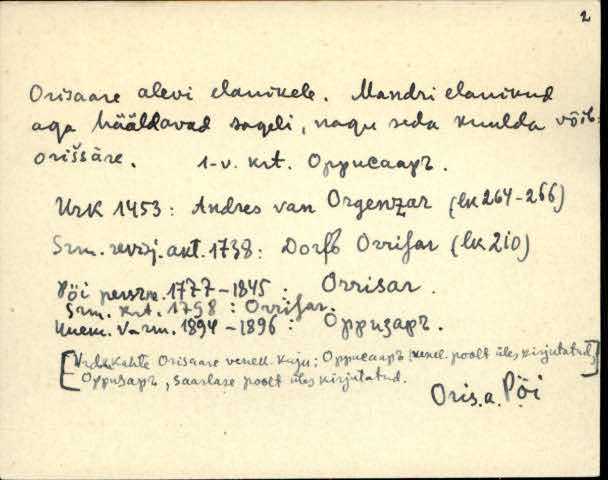 2
Orisaare alevi elanikele. Mandri elanikud
aga hääldavad sageli, nagu seda kuulda võib:
orišsāre. 1-v. krt. Орриcааръ.
UrK 1453: Andres van Orgenzar (lk 264-266)
Srm. revisj. akt. 1738: Dorff Orrisar (lk 210)
Pöi persrm. 1777-1845: Orrisar.
Srm. krt. 1798: Orrisar.
V.-rm. 1894-1896: Орризаръ.
[Orisaare venek. kuju: Оррисааръ venel. poolt üles kirjutatud]
Оррзаръ, saarlase poolt üles kirjutatud.
Oris.a. Pöi